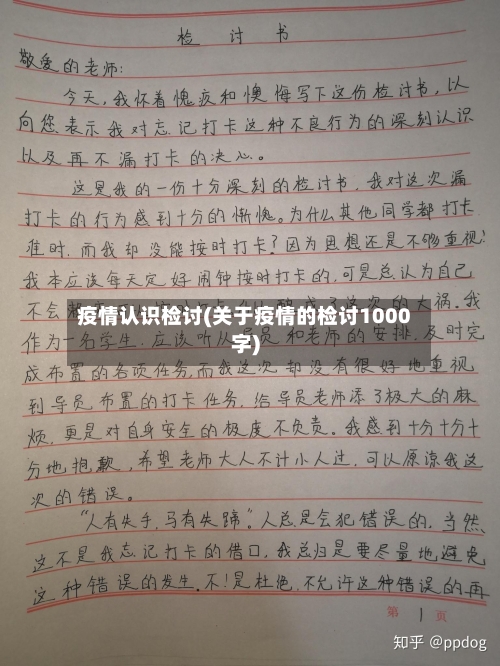 检讨书
敬爱的老师:
今天,我怀着愧疚和懊悔写下这份检讨书,以
向您表示我对忘记打卡这种不良行为的深刻认识
以及再不漏打卡的决心。
这是我的一份十分深刻的检讨书,我对这次漏
打卡的行为感到十分的惭愧。为什么其他同学都打卡
准时,而我却没能按时打卡?因为思想还是不够重视!
我本应该每天定好闹钟按时打卡的,可是总认为自己
不会
疫情认识检讨(关于疫情的检讨1000
字)
的大祸。我
作为一名学生,应该听从导员和老师的安排,及时完
成布置的各项任务,而我这次却没有很好地重视
到导员布置的打卡任务,给导员老师添了极大的麻
烦,更是对自身安全的极度不负责。我感到十分十分十
分地抱歉,希望老师大人不计小人过,可以原谅我这
次的错误。
“人有失手,马有失蹄”。人总是会犯错误的,当然,
这不是我忘记打卡的借口,我总归是要尽量地避免
这种错误的发生。不!是杜绝,不允许这种错误的再
第 1 页
知乎 @ppdog